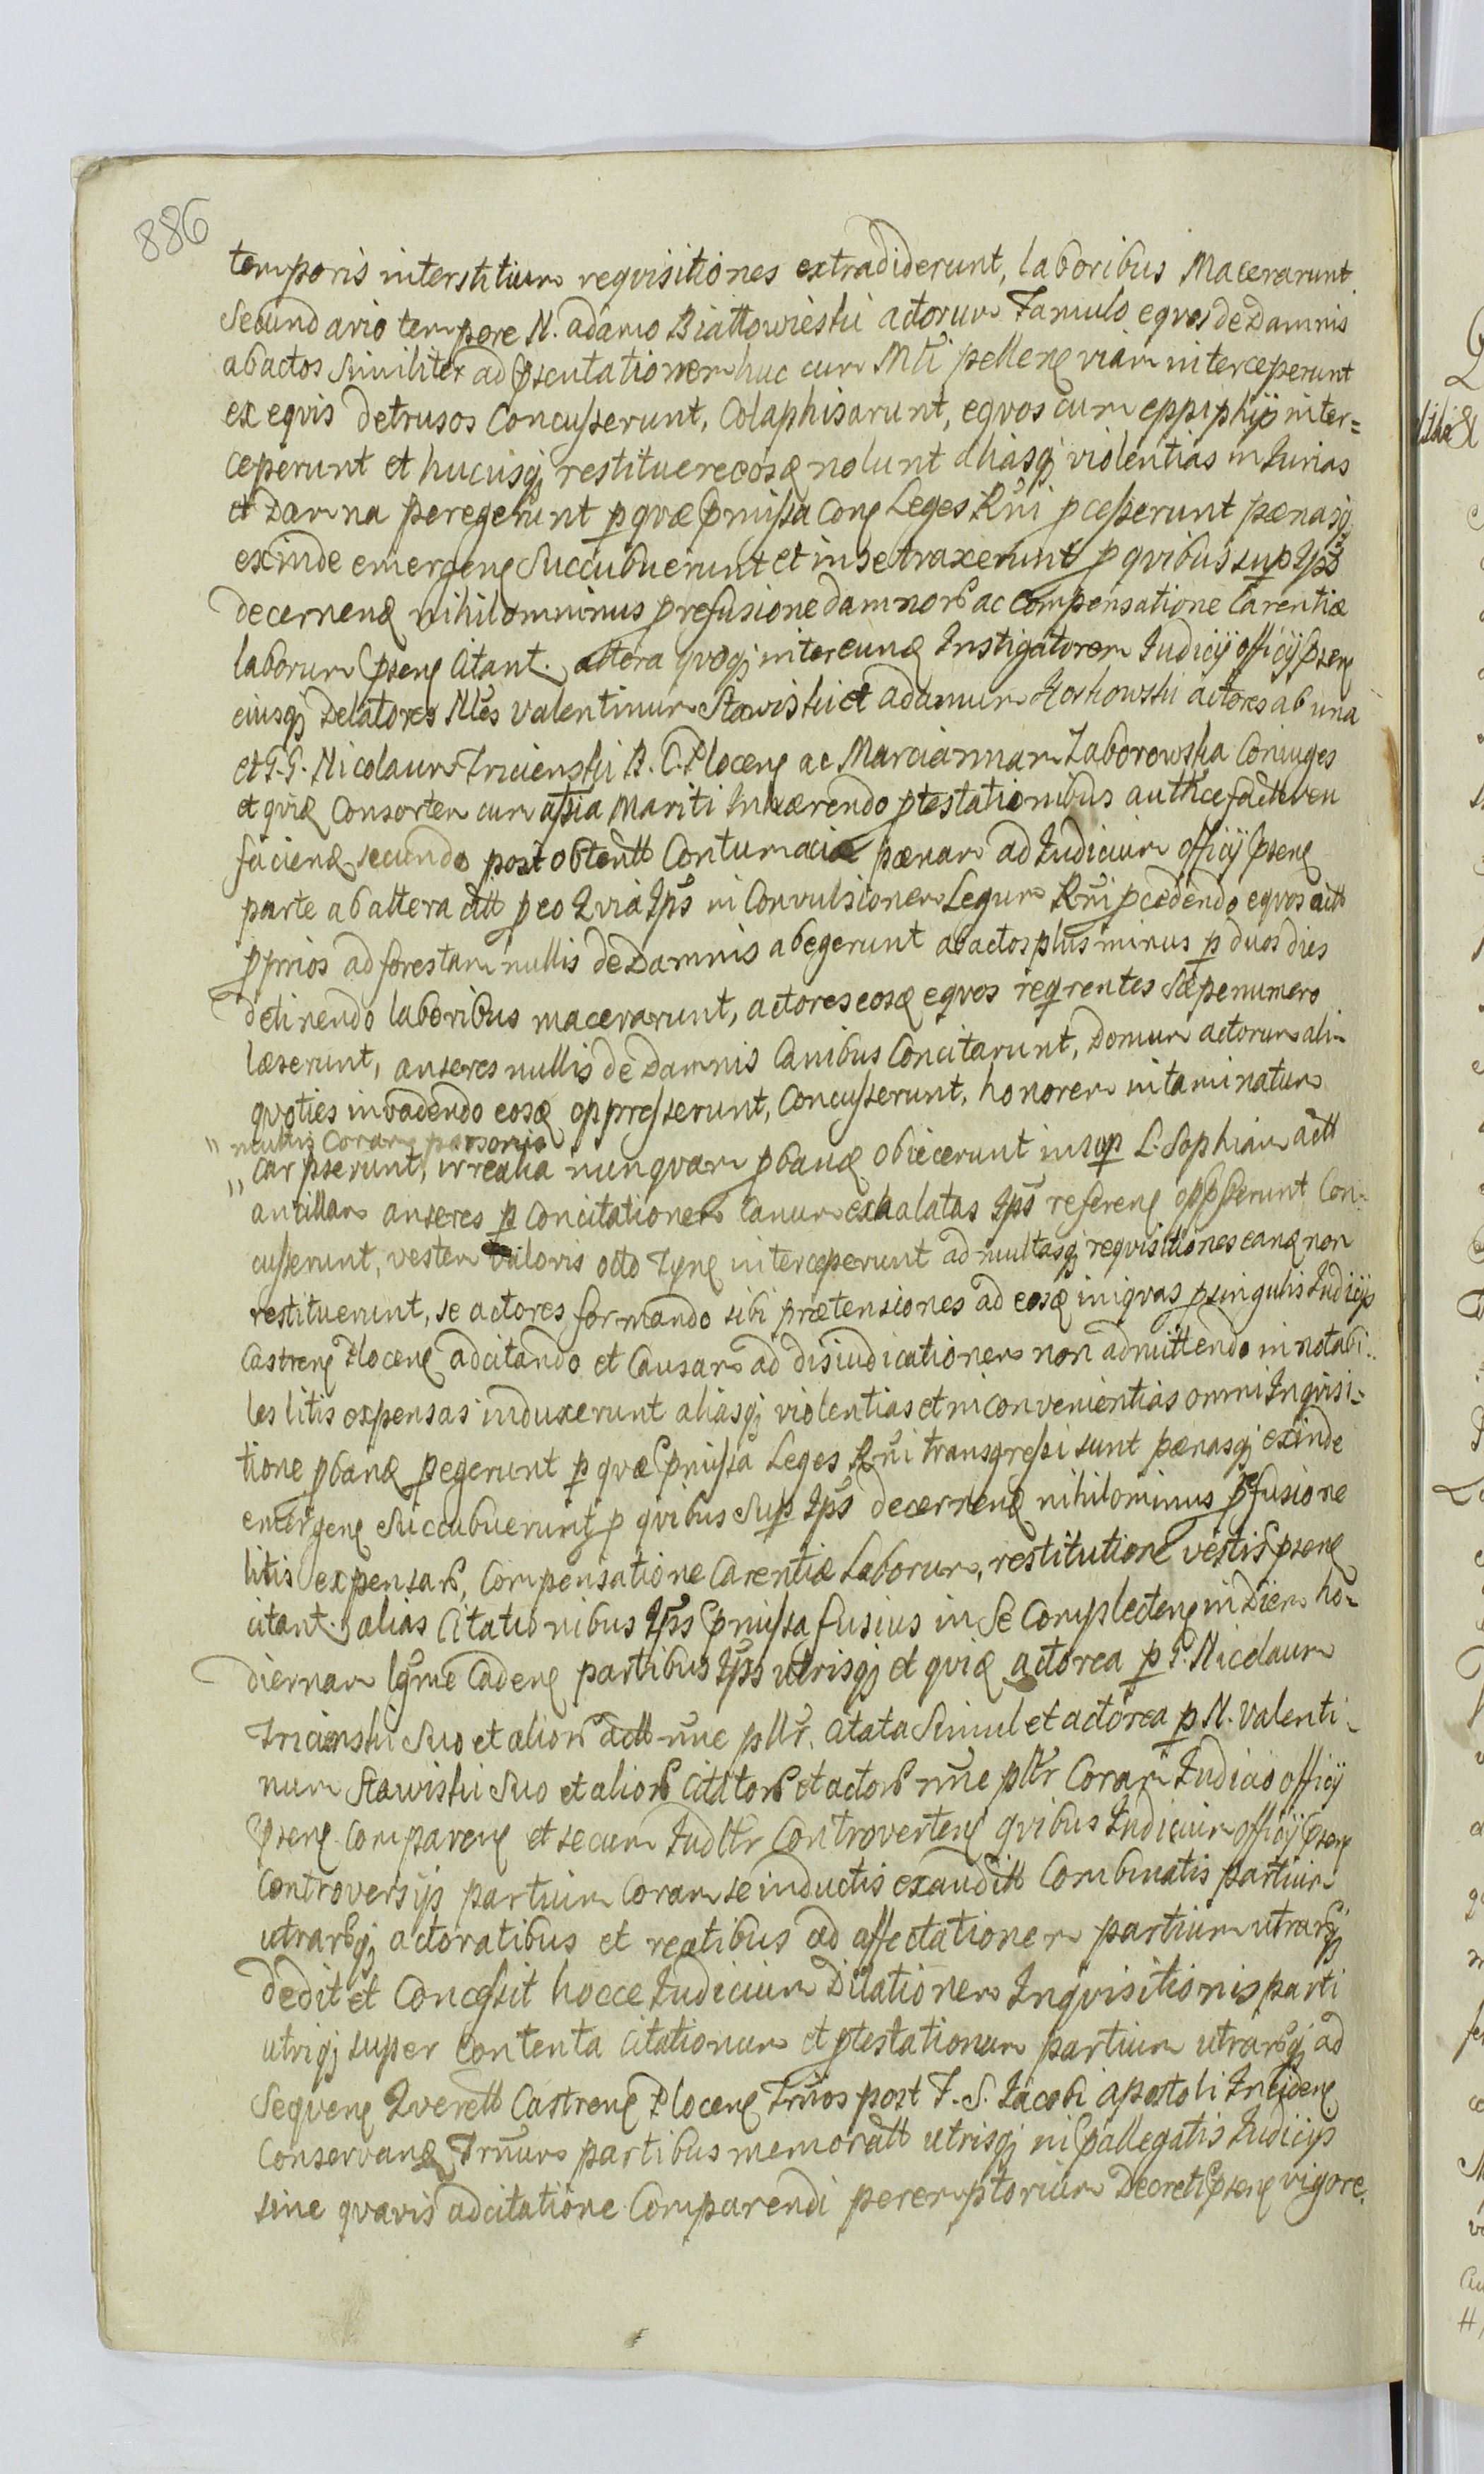 886
temporis interstitium reqvisitiones extradiderunt, laboribus Macerarunt
Secundario tempore N. adamo Biattowieski actorum Famulo eqvos de Damnis
abactos Similiter ad pſentationem huc cum Mti pellenȩ viam interceperunt
ex eqvis detrusos Concuſserunt, Colaphisarunt, eqvos cum eppiphijs inter=
ceperunt et hucusqȝ restituere eosȩ nolunt aliasqȝ violentias inIurias
et Damna peregerunt p qvæ pmiſsa Conȩ Leges Rni pceſserunt pænasqȝ
exinde emergenȩ Succubuerunt et in se traxerunt p qvibus sup Ipš
decernenȩ nihilominus p refusione damnorȝ ac Compensatione Carentiæ
laborum pſenȩ Citant. altera qvoqȝ inter eunȩ Instigatorem Iudicij officij pſenȩ
eiusqȝ Delatores Nles Valentinum Stawiski et adamum Horkowski actores ab una
et G. G. Nicolaum Trzcienski B. C. Plocenȩ ac Mariannam Zaborowska Coniuges
et qviȩ Consortem cum aſsia Mariti Inhærendo ptestationibus
facienȩ secundo post obtentt Contumaciæ pænam ad Iudicium officij pſenȩ
parte ab altera citt p eo Qvia Ipš in Convulsionem Legum Rni pcedendo eqvos actt
pprios ad forestam nullis de Damnis abegerunt abactos plus minus p duos dies
detinendo laboribus macerarunt, actores eosȩ eqvos reqrentes Sæpenumero
læserunt, anseres nullis de Damnis Canibus Concitarunt, Domum actorum ali-
qvoties invadendo eosȩ oppreſserunt, Concuſserunt, honorem intaminatum
" multis Coram personis
" Carpserunt, irrealia nunqvam pbanȩ obiecerunt insup L. Sophiam actt
ancillam anseres p Concitationem Canum exhalatas Ipš referenȩ oppſserunt Con-
cuſserunt, vestem valoris octo Tynȩ interceperunt ad multasqȝ reqvisitiones eanȩ non
restituerunt, se actores formando sibi prætensiones ad eosȩ iniqvas p singulis Iudicijs
Castrenȩ Plocenȩ adcitando et Causam ad disiudicationem non admittendo in notabi-
les litis expensas induxerunt aliasqȝ violentias et inconvenientias omni Inqvisi=
tione pbanȩ pegerunt p qvæ pmiſsa Leges Rni transgreſsi sunt pænasqȝ exinde
emergenȩ Succubuerunt p qvibus Sup Ipš decernenȩ nihilominus p refusione
litis expensarȝ, Compensatione Carentiæ Laborum, restitutione vestis pſenȩ
citant. alias Citationibus Ipš pmiſsa fusius in Se Complectenȩ in Diem ho-
diernam lgme Cadenȩ partibus Ipš utrisqȝ et qviȩ actorea p G. Nicolaum
Trzcienski Suo et aliorȝ actt nne pltr. Citata Simul et actorea p N. Valenti-
num Stawiski Suo et aliorȝ Citatorȝ et actorȝ nne pltr Coram Iudicio officij
pſenȩ Comparenȩ et secum Iudltr Controvertenȩ qvibus Iudicium officij pſenȩ
Controversijs partium Coram se inductis exauditt Combinatis partium
utrarȝqȝ actoratibus et reatibus ad affectationem partium utrarȝqȝ
dedit et Conceſsit hocce Iudicium Dilationem Inqvisitionis parti
utriqȝ super Contenta Citationum et ptestationum partium utrarȝqȝ ad
Seqvenȩ Qverell Castrenȩ Plocenȩ Trnos post F. S. Iacobi apostoli Incidenȩ
Conservanȩ Trnum partibus memoratt utrisqȝ in pallegatis Iudicijs
sine qvavis adcitatione Comparendi peremptorium Decreti pſenȩ vigore.